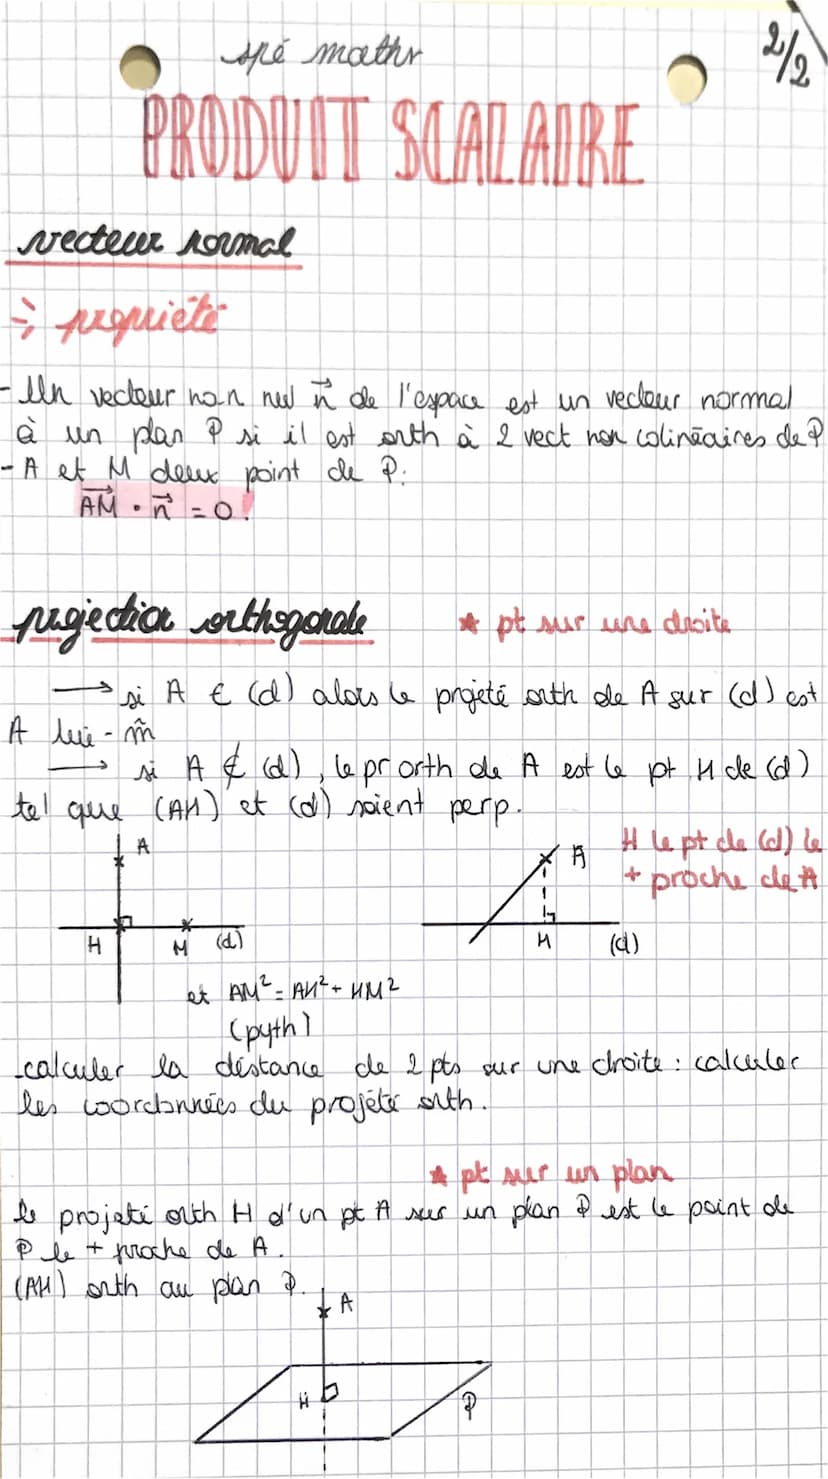 spé maths
2/2
PRODUIT SCALAIRE
vecteur normal
→ propriété
- Un vecteur non nul n⃗ de l'espace est un vecteur normal
à un plan P si il est orth à 2 vect non colinéaires de P
- A et M deux point de P:
AM⃗ · n⃗ = 0!
projection orthogonale
* pt sur une droite
→ si A ∈ (d) alors le projeté orth de A sur (d) est
A lui-m̂
→ si A ∉ (d), le pr orth de A est le pt H de (d)
tel que (AH) et (d) soient perp.
A
H M (d)
A
H (d)
H le pt de (d) le
+ proche de A
et AM² = AH² + HM²
(pyth)
-calculer la distance de 2 pts sur une droite : calculer
les coordonnées du projeté orth.
* pt sur un plan
le projeté orth H d'un pt A sur un plan P est le point de
P le + proche de A.
(AH) orth au plan P.
A
H P